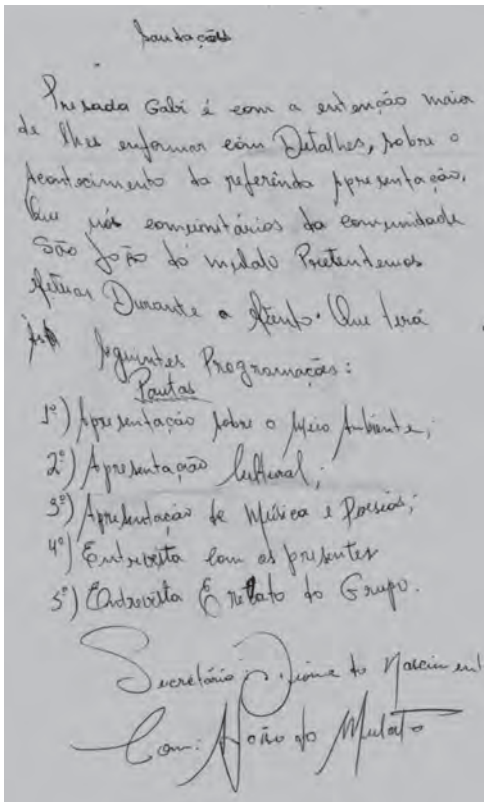 Saudações
Presada Gabi é com a entenção maior
de lhes enformar com Detalhes, sobre o
Acontecimento da referênda Apresentação.
Que nós comunitários da comunidade
São João do mulato Pretendemos
Efetuar Durante o Evento. Que terá
As Seguintes Programações:
Pautas
1º) Apresentação sobre o Meio Ambiente;
2º) Apresentação Cultural;
3º) Apresentação de Música e Poesias;
4º) Entrevista com os presentes
5º) Entrevista E relato do Grupo.
Secretário: do Nasciment
Com: João do Mulato